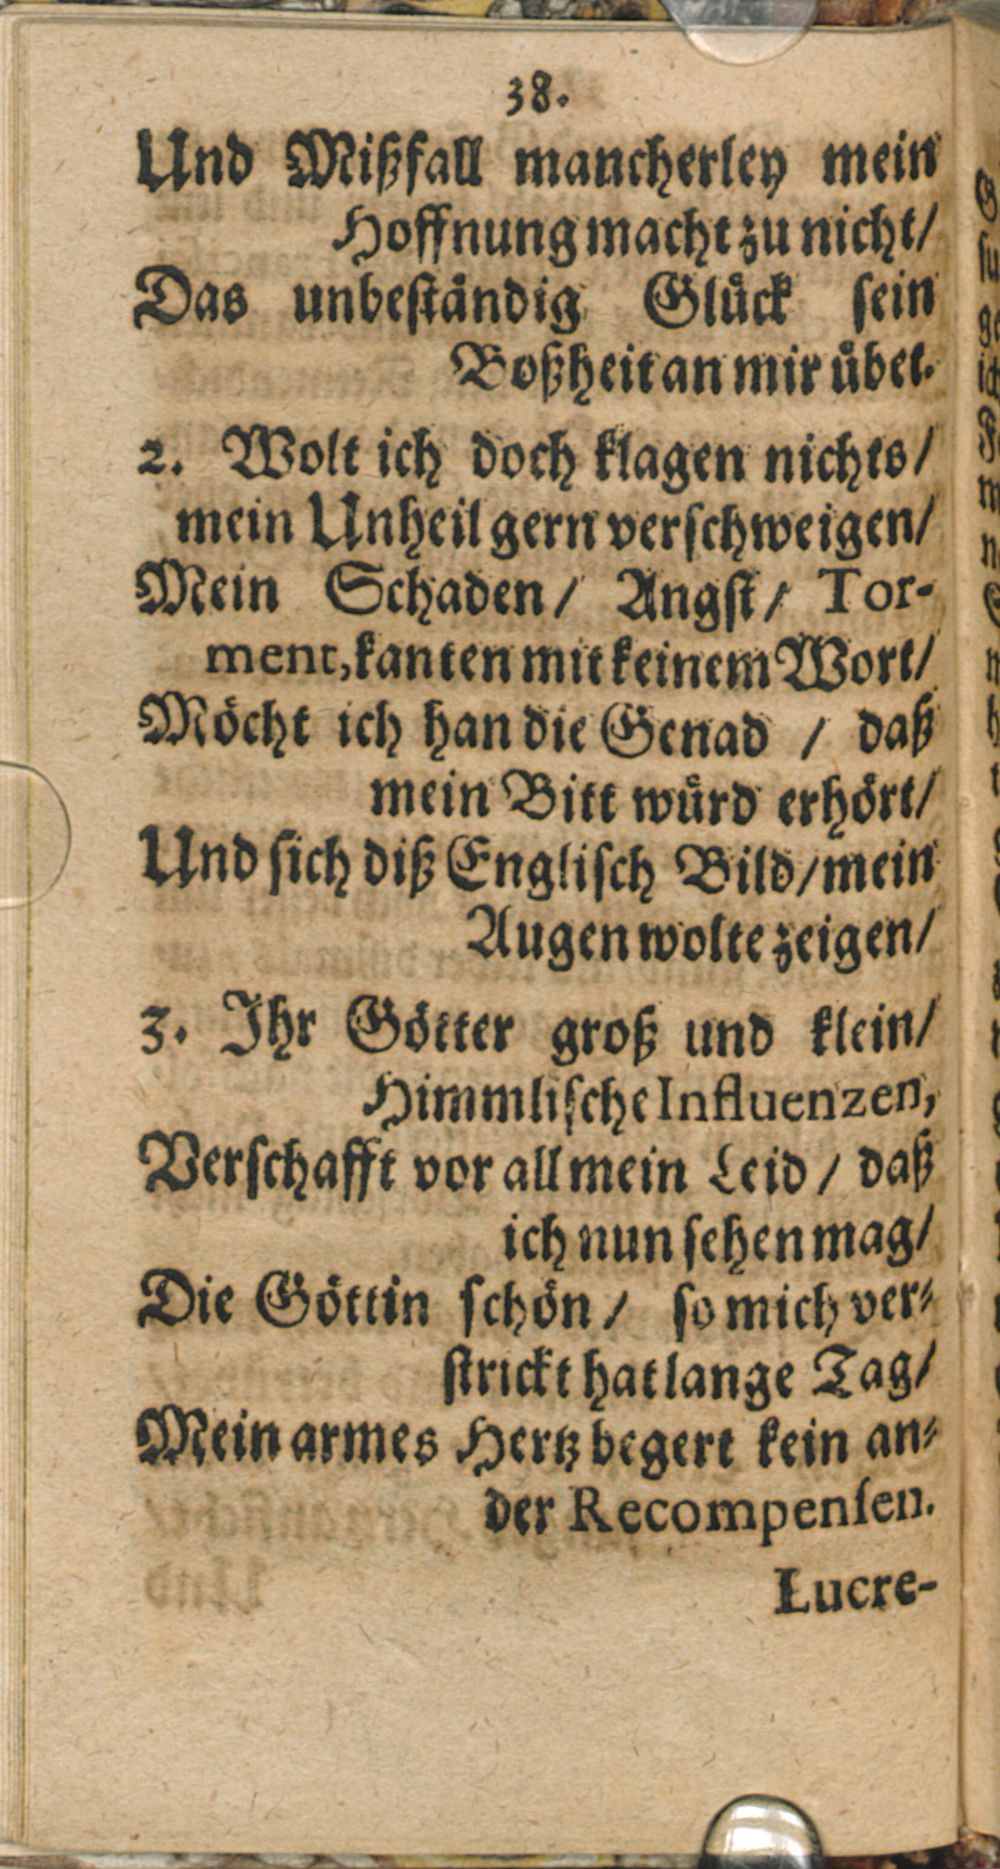 38.
Und Mißfall mancherley mein
Hoffnung macht zu nicht/
Das unbeständig Glück sein
Boßheit an mir übet.
2. Wolt ich doch klagen nichts/
mein Unheil gern verschweigen/
Mein Schaden/ Angst/ Tor-
ment, kanten mit keinem Wort/
Möcht ich han die Genad / daß
mein Bitt würd erhört/
Und sich diß Englisch Bild/mein
Augen wolte zeigen/
3. Ihr Götter groß und klein/
Himmlische Influenzen,
Verschafft vor all mein Leid / daß
ich nun sehen mag/
Die Göttin schön / so mich ver-
strickt hat lange Tag/
Mein armes Hertz begert kein an-
der Recompensen.
Lucre-